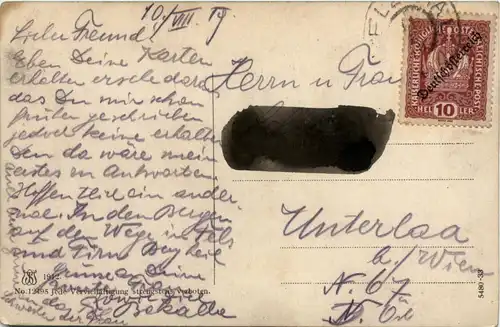 10/VIII 19
Lieber Freund!
Eben Deine Karten
erhalten ersehe daraus
das Du mir schon
früher geschrieben
jedoch keine erhalten
den da wäre mein
erstes ein Antworten
Hoffentlich ein ander-
mal. In den Bergen
auf dem Wege in Fels
und Firn Berg heil
Deine
Herrn u Frau
Unterlaa
b/Wien
N 67
N. Öst
KAISERLICHE KÖNIGLICHE ÖSTERREICHISCHE POST
Deutschösterreich
HELLER 10 HELLER
1912.
No. 12495 Jede Vervielfältigung strengstens verboten.
5480-33